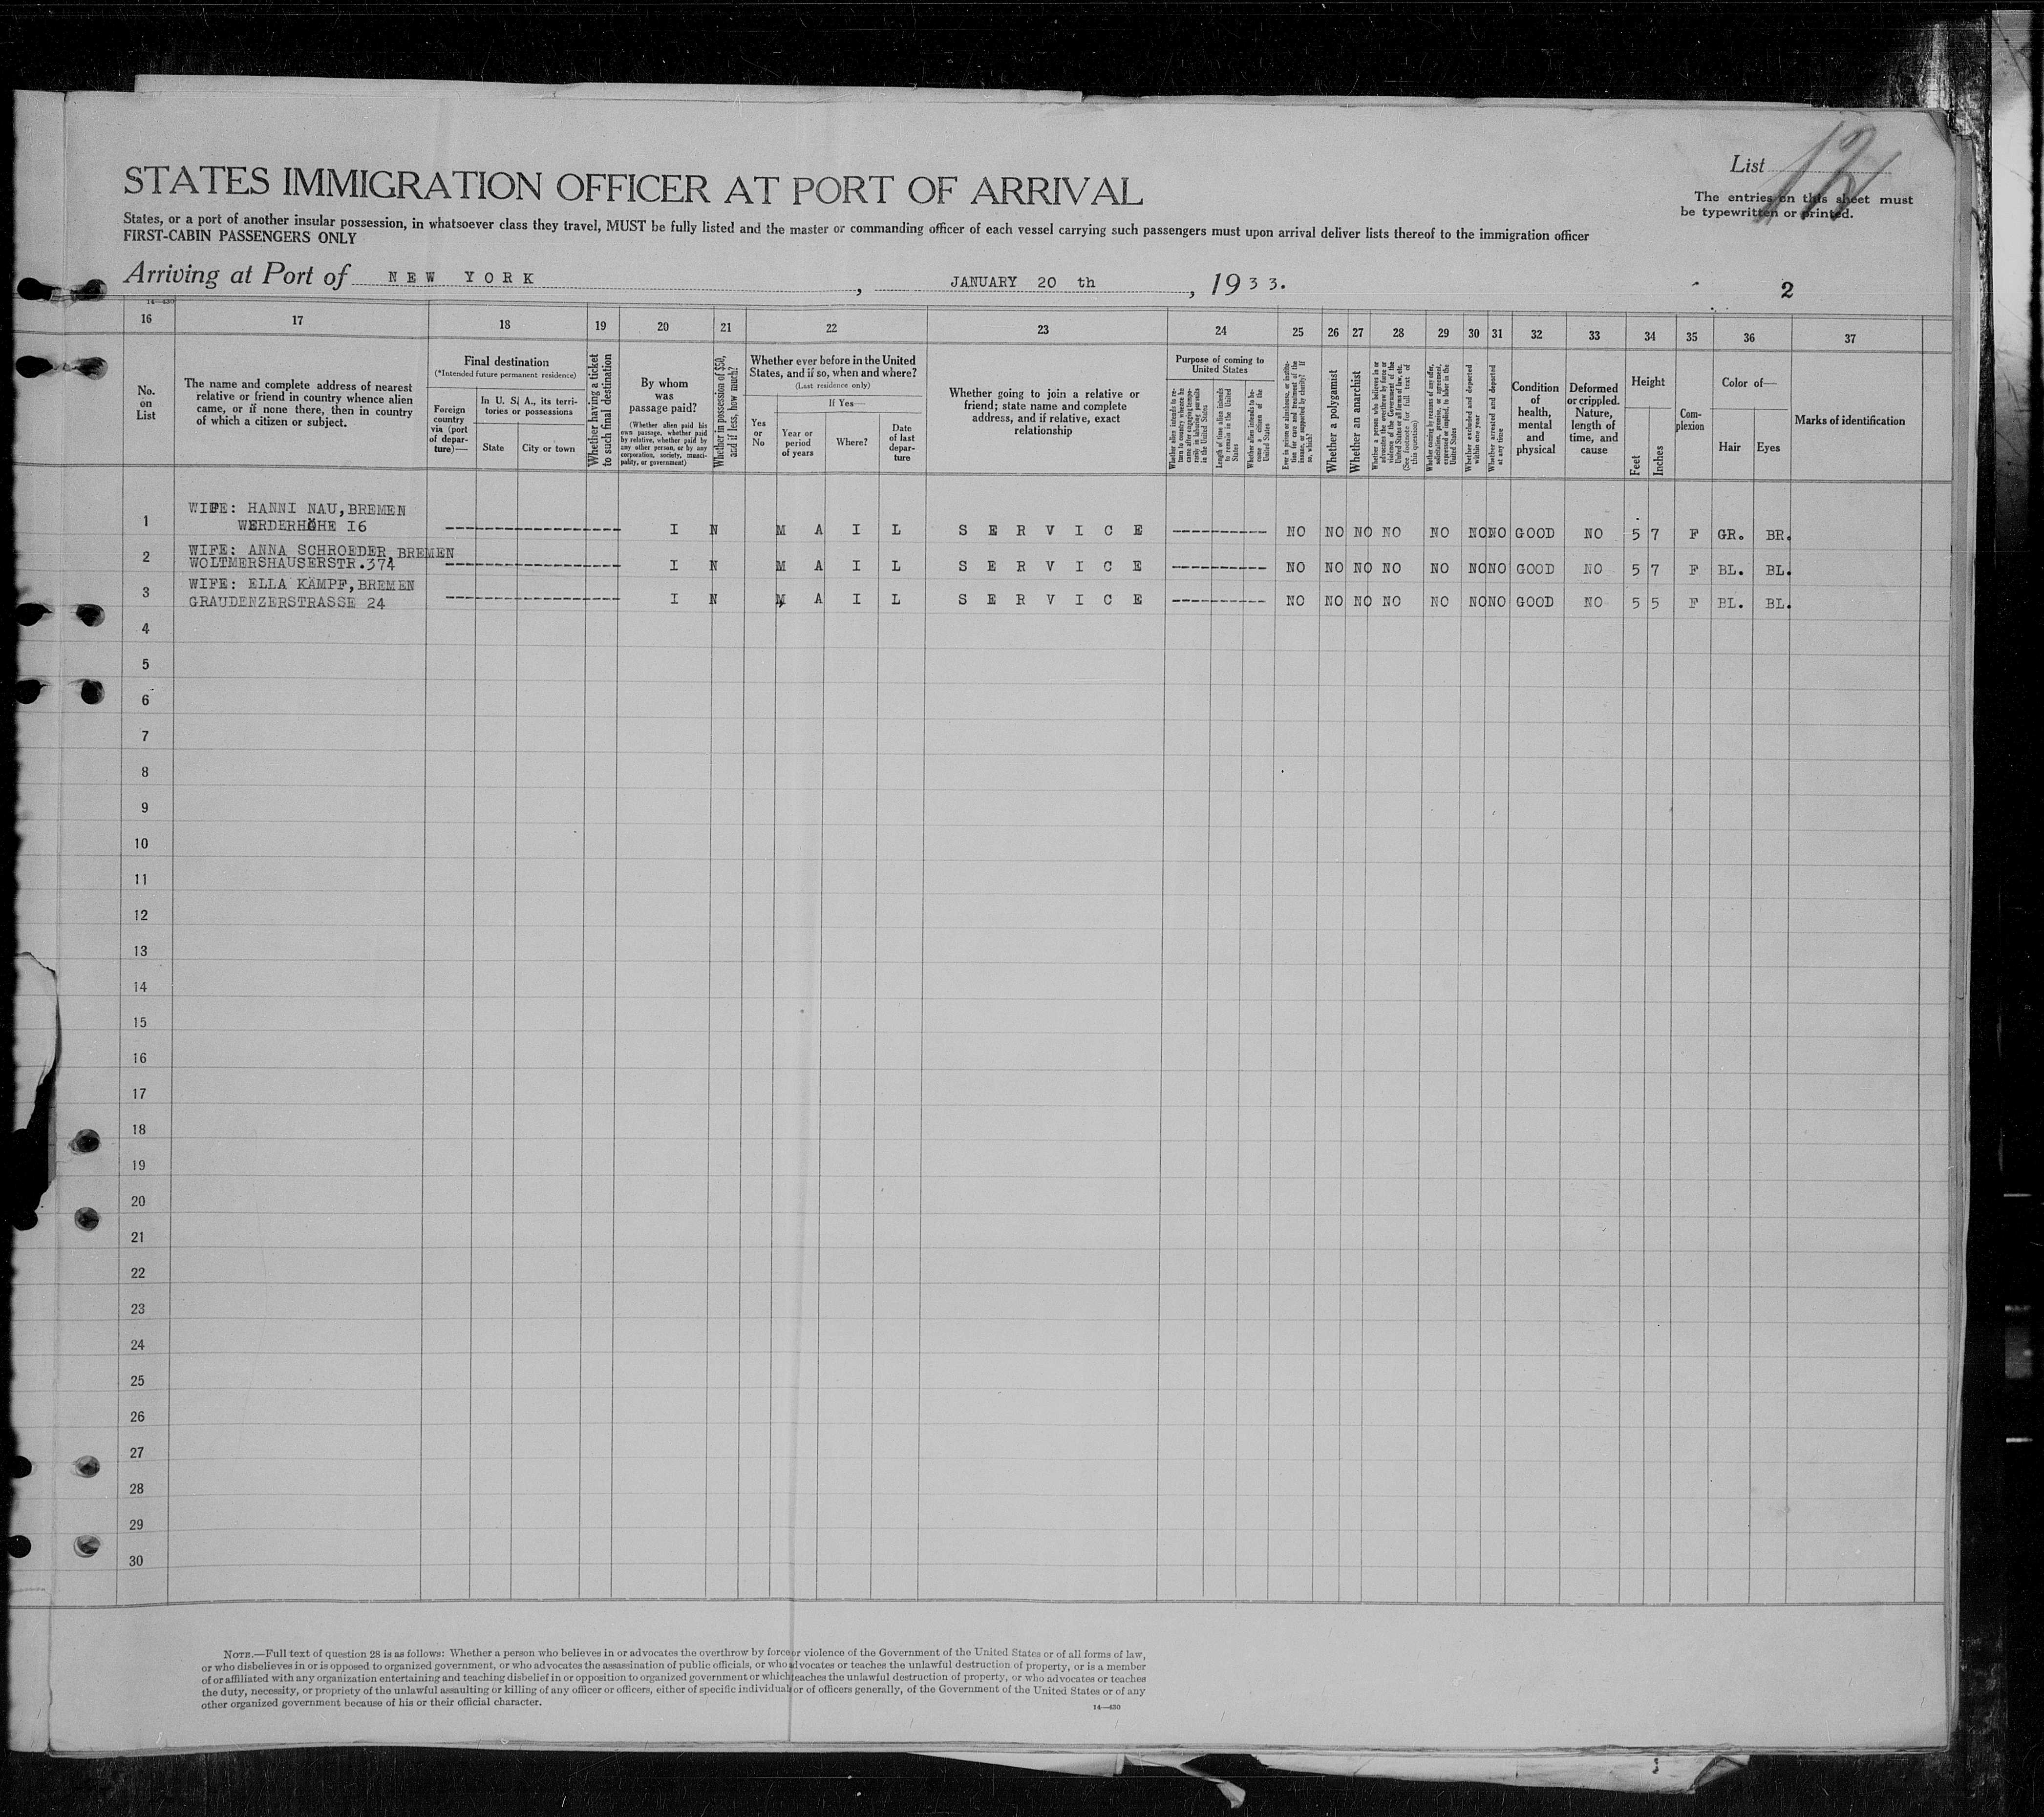 List 12
STATES IMMIGRATION OFFICER AT PORT OF ARRIVAL
The entries on this sheet must
be typewritten or printed.
States, or a port of another insular possession, in whatsoever class they travel, MUST be fully listed and the master or commanding officer of each vessel carrying such passengers must upon arrival deliver lists thereof to the immigration officer
FIRST-CABIN PASSENGERS ONLY
Arriving at Port of NEW YORK, JANUARY 20 th, 1933.
2
14—430
16 17 18 19 20 21 22 23 24 25 26 27 28 29 30 31 32 33 34 35 36 37
No.
on
List
The name and complete address of nearest
relative or friend in country whence alien
came, or if none there, then in country
of which a citizen or subject.
Final destination
(*Intended future permanent residence)
Foreign
country
via (port
of depar-
ture)—
In U. S. A., its terri-
tories or possessions
State
City or town
Whether having a ticket
to such final destination
By whom
was
passage paid?
(Whether alien paid his
own passage, whether paid
by relative, whether paid by
any other person, or by any
corporation, society, munici-
pality, or government)
Whether in possession of $50,
and if less, how much?
Whether ever before in the United
States, and if so, when and where?
(Last residence only)
Yes
or
No
If Yes—
Year or
period
of years
Where?
Date
of last
depar-
ture
Whether going to join a relative or
friend; state name and complete
address, and if relative, exact
relationship
Purpose of coming to
United States
Whether alien intends to re-
turn to country whence he
came after engaging tempo-
rarily in laboring pursuits
in the United States
Length of time alien intends
to remain in the United
States
Whether alien intends to be-
come a citizen of the
United States
Ever in prison or almshouse, or institu-
tion for care and treatment of the
insane, or supported by charity? If
so, which?
Whether a polygamist
Whether an anarchist
Whether a person who believes in or
advocates the overthrow by force or
violence of the Government of the
United States or all forms of law, etc.
(See footnote for full text of
this question)
Whether coming by reasons of any offer,
solicitation, promise, or agreement,
expressed or implied, to labor in the
United States
Whether excluded and deported
within one year
Whether arrested and deported
at any time
Condition
of
health,
mental
and
physical
Deformed
or crippled.
Nature,
length of
time, and
cause
Height
Feet
Inches
Com-
plexion
Color of—
Hair
Eyes
Marks of identification
WIFE: HANNI NAU, BREMEN
1 WERDERHÖHE I6 I N M A I L S E R V I C E NO NO NO NO NO NO NO GOOD NO 5 7 F GR. BR.
WIFE: ANNA SCHROEDER, BREMEN
2 WOLTMERSHAUSERSTR.374 I N M A I L S E R V I C E NO NO NO NO NO NO NO GOOD NO 5 7 F BL. BL.
WIFE: ELLA KÄMPF, BREMEN
3 GRAUDENZERSTRASSE 24 I N M A I L S E R V I C E NO NO NO NO NO NO NO GOOD NO 5 5 F BL. BL.
4
5
6
7
8
9
10
11
12
13
14
15
16
17
18
19
20
21
22
23
24
25
26
27
28
29
30
NOTE.—Full text of question 28 is as follows: Whether a person who believes in or advocates the overthrow by force or violence of the Government of the United States or of all forms of law,
or who disbelieves in or is opposed to organized government, or who advocates the assassination of public officials, or who advocates or teaches the unlawful destruction of property, or is a member
of or affiliated with any organization entertaining and teaching disbelief in or opposition to organized government or which teaches the unlawful destruction of property, or who advocates or teaches
the duty, necessity, or propriety of the unlawful assaulting or killing of any officer or officers, either of specific individual or of officers generally, of the Government of the United States or of any
other organized government because of his or their official character.
14—430